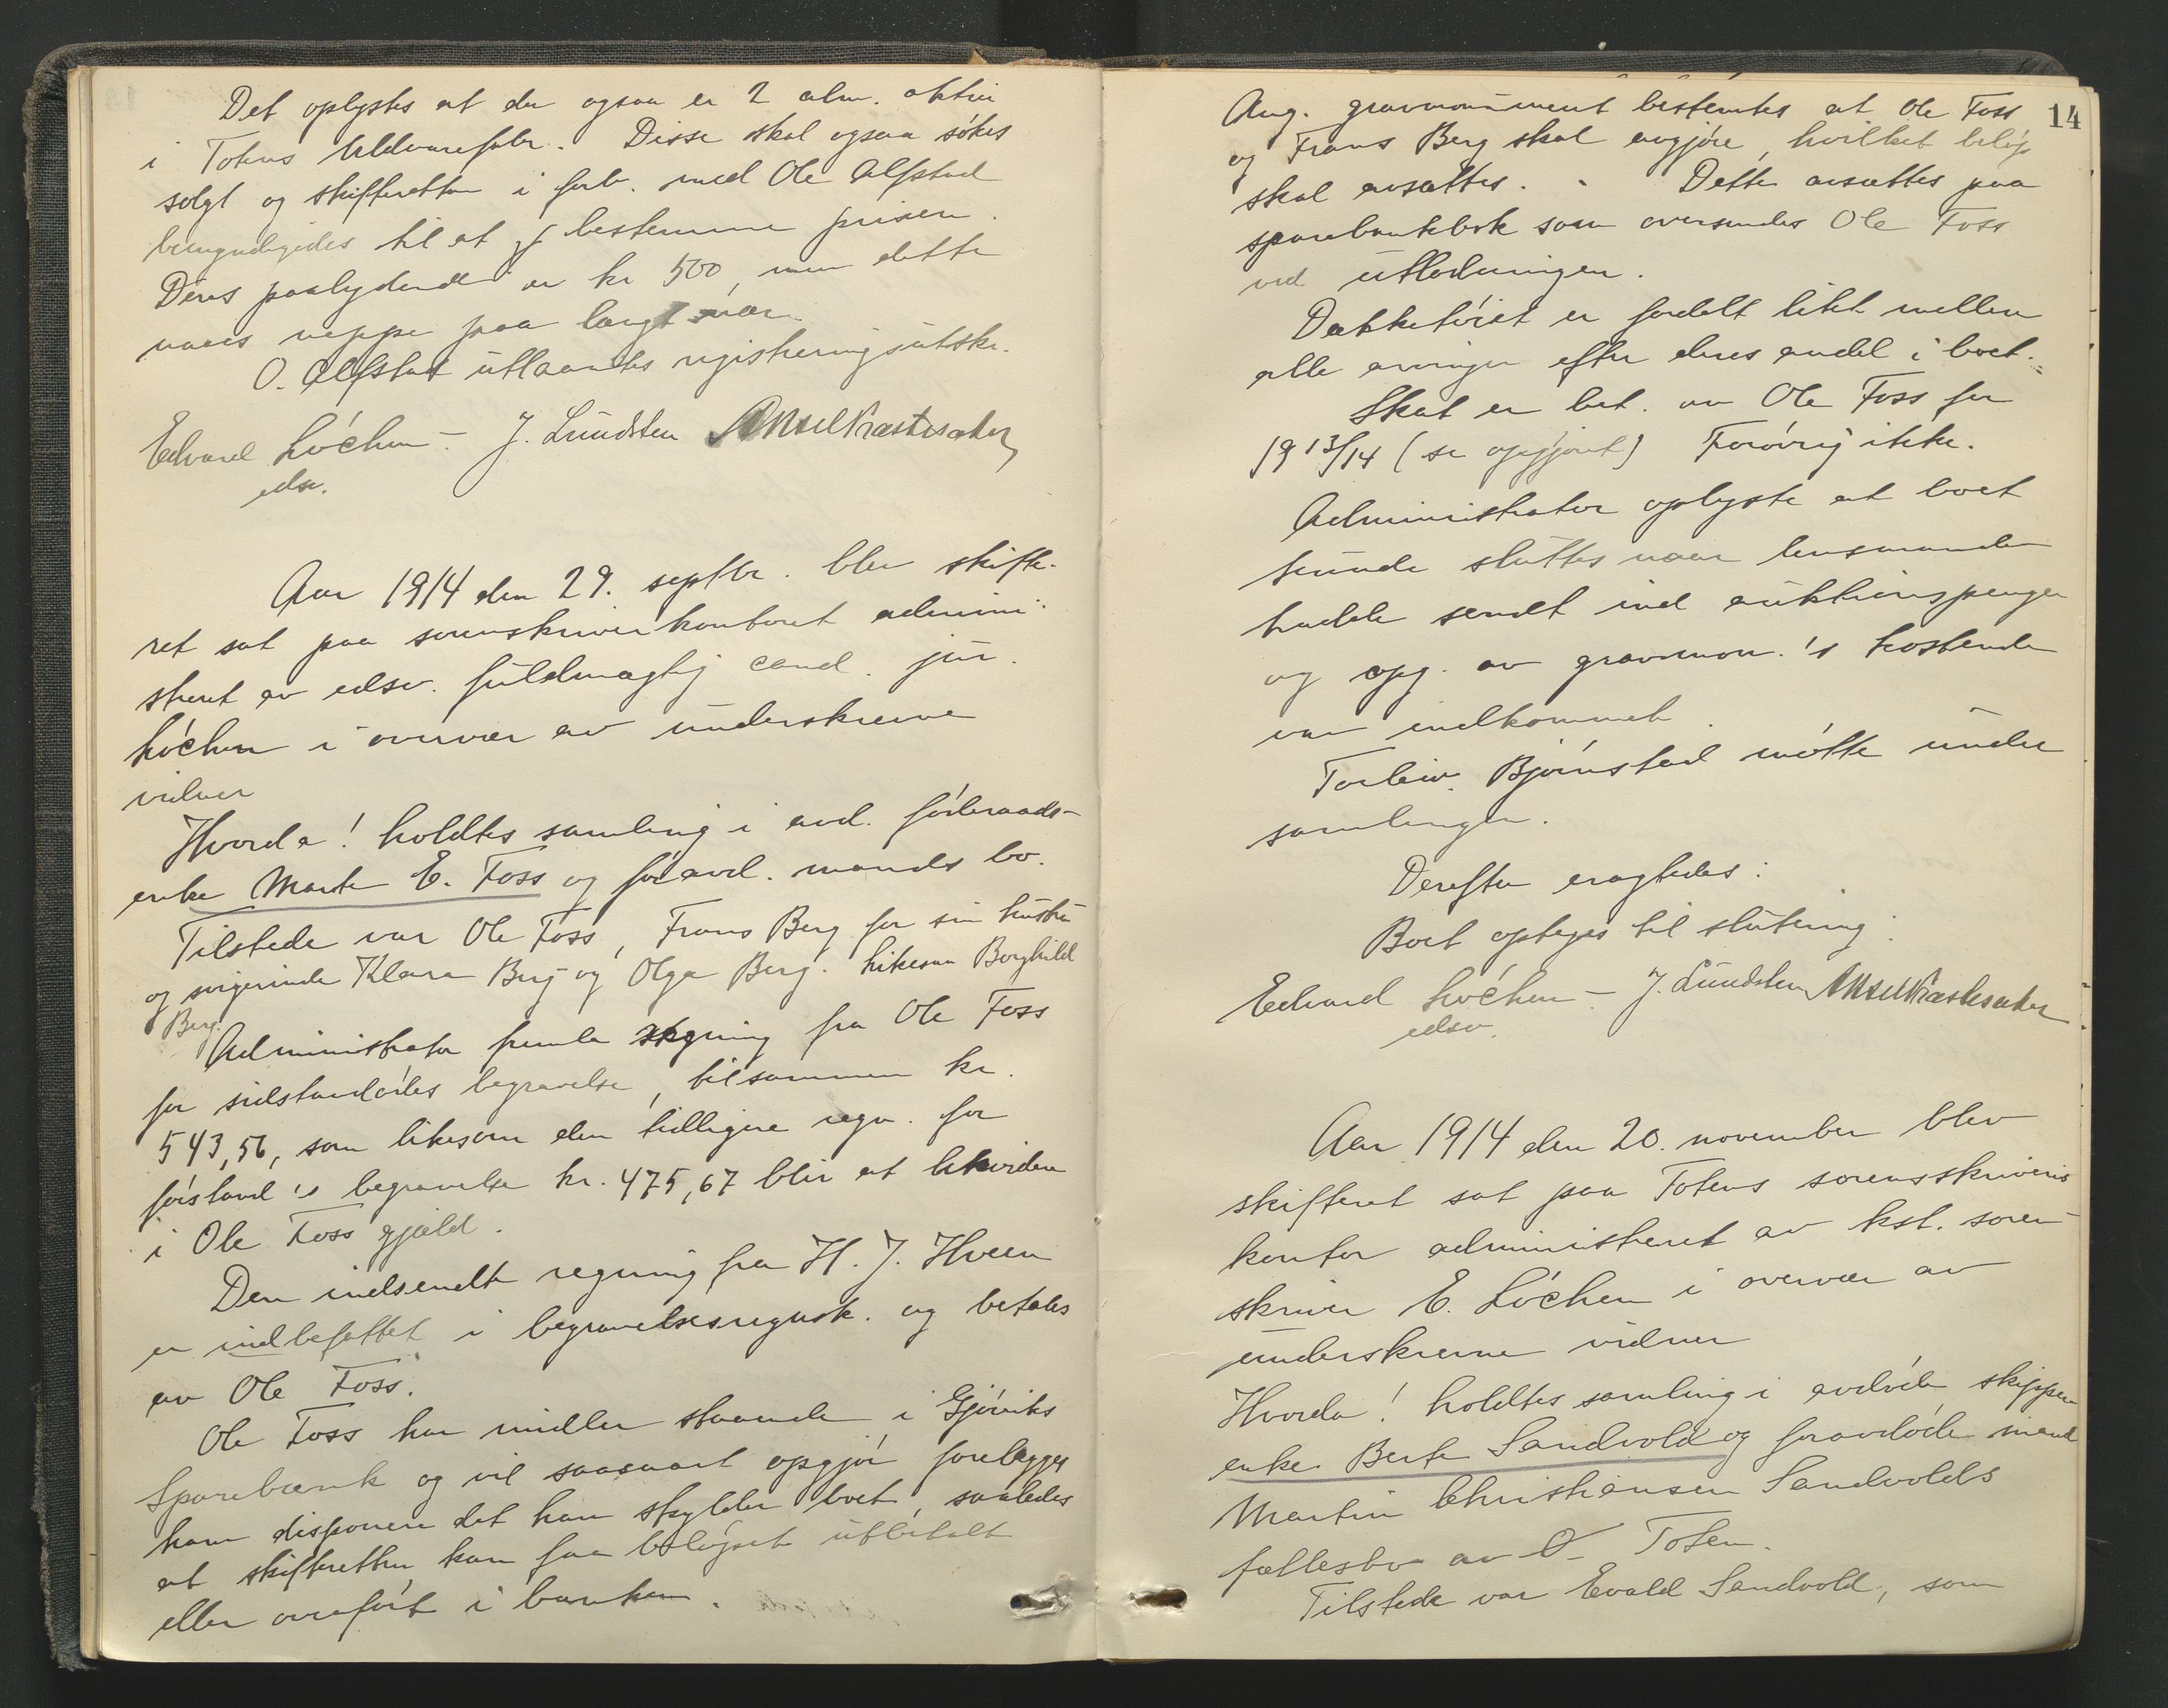 Det oplystes at der ogsaa er 2 alm. aktier
i Totens Uldvarefabr. Disse skal ogsaa søkes
solgt og skifteretten i forb. med Ole Alfstad
bemyndigedes til at bestemme prisen.
Deres paalydende er kr 500, men dette
naaes neppe paa langt nær.
O. Alfstad utlaantes registreringsutskr.
Edvard Løchen - J. Lundsten Aksel Præstesæter
edsv.
Aar 1914 den 29. septbr. blev skifte-
ret sat paa sorenskriverkontoret admini-
streret av edsv. fuldmægtig cand. jur.
Løchen i overvær av underskrevne
vidner
Hvorda! holdtes samling i avd. føderaads-
enke Marte E. Foss og føravd. mands bo.
Tilstede var Ole Foss, Frans Berg for sin hustru
og svigerinde Klara Berg og Olga Berg. Likesaa Borghild
Berg.
Administrator fremla regning fra Ole Foss
for sidstavdødes begravelse, tilsammen kr.
543,56, som likesom den tidligere regn. for
førstavd's begravelse kr. 475,67 blir at likvidere
i Ole Foss gjæld.
Den indsendte regning fra H. J. Hveem
er indbefattet i begravelsesregnsk. og betales
av Ole Foss.
Ole Foss har midler staaende i Gjøviks
Sparebank og vil saasnart opgjør forelægges
ham disponere det han skylder boet, saaledes
at skifteretten kan faa beløpet utbetalt
eller overført i banken.
14
Ang. gravmonument bestemtes at Ole Foss
og Frans Berg skal avgjøre, hvilket beløp
skal avsættes. - Dette avsættes paa
sparebankbok som oversendes Ole Foss
ved utlodningen.
Dækketøiet er fordelt likt mellem
alle arvinger efter deres andel i boet.
Skat er bet. av Ole Foss for
1913/14 (se opgjøret) Forøvrig ikke.
Administrator oplyste at boet
kunde sluttes naar lensmanden
hadde sendt ind auktionspenger
og opg. av gravmon.'s kostende
var indkommet.
Torleiv Bjørnstad møtte under
samlingen.
Derefter eragtedes:
Boet optages til slutning.
Edvard Løchen - J. Lundsten Aksel Præstesæter
edsv.
Aar 1914 den 20. november blev
skifteret sat paa Totens sorenskrivers
kontor administreret av kst. soren-
skriver E. Løchen i overvær av
underskrevne vidner
Hvorda! holdtes samling i avdøde skipper
enke Berte Sandvold og foravdøde mand
Martin Christiansen Sandvolds
fællesbo av Ø. Toten.
Tilstede var Evald Sandvold, som